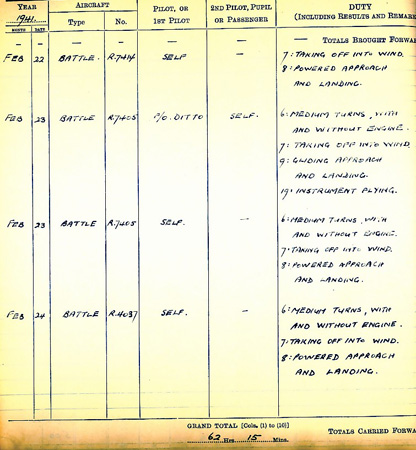 YEAR AIRCRAFT PILOT, OR 2ND PILOT, PUPIL DUTY
1941. Type No. 1ST PILOT OR PASSENGER (INCLUDING RESULTS AND REMAR
MONTH DATE
— — — — — — — TOTALS BROUGHT FORWA
FEB 22 BATTLE. R.7414 SELF — 7: TAKING OFF INTO WIND.
8: POWERED APPROACH
AND LANDING.
FEB 23 BATTLE R.7405 P/O. DITTO SELF. 6: MEDIUM TURNS, WITH
AND WITHOUT ENGINE.
7: TAKING OFF INTO WIND
9: GLIDING APPROACH
AND LANDING.
19: INSTRUMENT FLYING.
FEB 23 BATTLE R.7405 SELF. — 6: MEDIUM TURNS, WITH
AND WITHOUT ENGINE.
7: TAKING OFF INTO WIND.
8: POWERED APPROACH
AND LANDING.
FEB 24 BATTLE R.4037 SELF. — 6: MEDIUM TURNS, WITH
AND WITHOUT ENGINE.
7: TAKING OFF INTO WIND.
8: POWERED APPROACH
AND LANDING.
GRAND TOTAL [Cols. (1) to (10)]
62 Hrs. 15 Mins.
TOTALS CARRIED FORWA